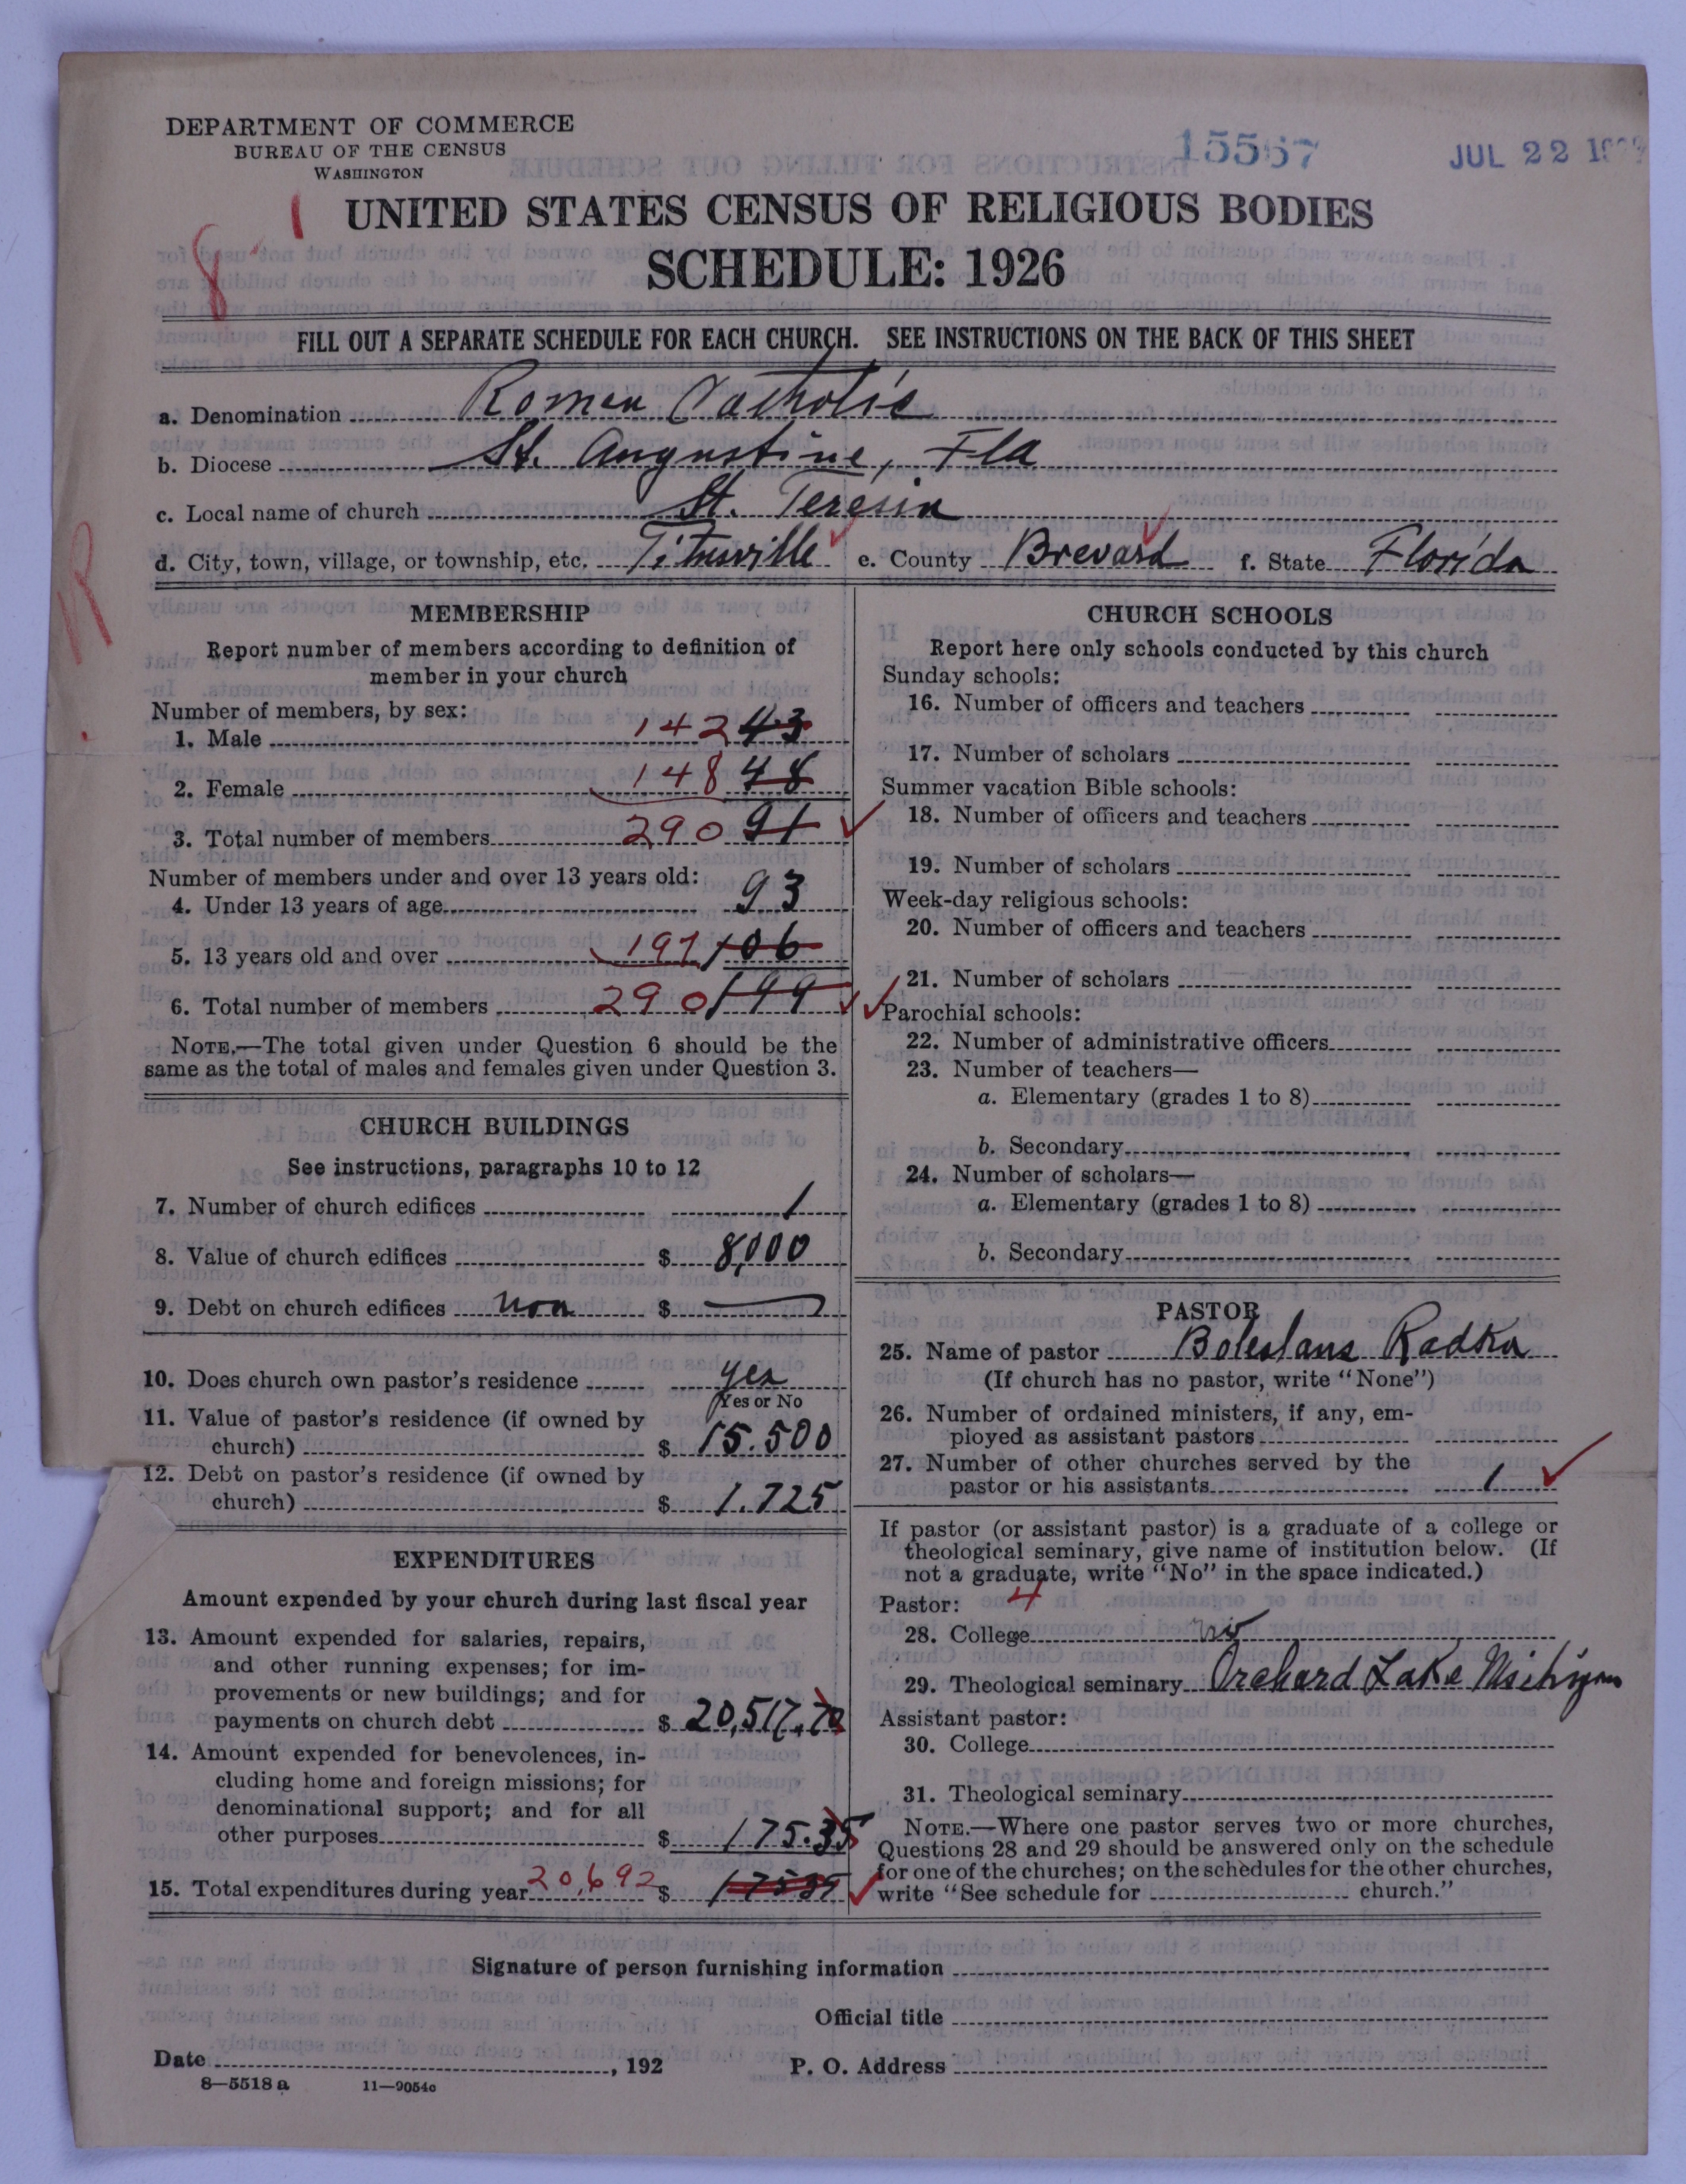 DEPARTMENT OF COMMERCE
BUREAU OF THE CENSUS
WASHINGTON
15567
JUL 22
8 1
UNITED STATES CENSUS OF RELIGIOUS BODIES
SCHEDULE: 1926
FILL OUT A SEPARATE SCHEDULE FOR EACH CHURCH. SEE INSTRUCTIONS ON THE BACK OF THIS SHEET
a. Denomination Roman Catholic
b. Diocese St. Augustine, Fla
c. Local name of church St. Teresia
d. City, town, village, or township, etc. Titusville e. County Brevard f. State Florida
R
MEMBERSHIP
Report number of members according to definition of
member in your church
Number of members, by sex:
1. Male 142 43
2. Female 148 48
3. Total number of members 290 91
Number of members under and over 13 years old:
4. Under 13 years of age 93
5. 13 years old and over 197 106
6. Total number of members 290 199
NOTE.—The total given under Question 6 should be the
same as the total of males and females given under Question 3.
CHURCH BUILDINGS
See instructions, paragraphs 10 to 12
7. Number of church edifices 1
8. Value of church edifices $ 8,000
9. Debt on church edifices non $
10. Does church own pastor's residence yes
Yes or No
11. Value of pastor's residence (if owned by
church) $ 15.500
12. Debt on pastor's residence (if owned by
church) $ 1.725
EXPENDITURES
Amount expended by your church during last fiscal year
13. Amount expended for salaries, repairs,
and other running expenses; for im-
provements or new buildings; and for
payments on church debt $ 20,517.70
14. Amount expended for benevolences, in-
cluding home and foreign missions; for
denominational support; and for all
other purposes $ 175.35
15. Total expenditures during year 20,692 $
CHURCH SCHOOLS
Report here only schools conducted by this church
Sunday schools:
16. Number of officers and teachers
17. Number of scholars
Summer vacation Bible schools:
18. Number of officers and teachers
19. Number of scholars
Week-day religious schools:
20. Number of officers and teachers
21. Number of scholars
Parochial schools:
22. Number of administrative officers
23. Number of teachers—
a. Elementary (grades 1 to 8)
b. Secondary
24. Number of scholars—
a. Elementary (grades 1 to 8)
b. Secondary
PASTOR
25. Name of pastor Boleslaus Radka
(If church has no pastor, write "None")
26. Number of ordained ministers, if any, em-
ployed as assistant pastors
27. Number of other churches served by the
pastor or his assistants 1
If pastor (or assistant pastor) is a graduate of a college or
theological seminary, give name of institution below. (If
not a graduate, write "No" in the space indicated.)
Pastor: 4
28. College no
29. Theological seminary Orchard Lake Michigan
Assistant pastor:
30. College
31. Theological seminary
NOTE.—Where one pastor serves two or more churches,
Questions 28 and 29 should be answered only on the schedule
for one of the churches; on the schedules for the other churches,
write "See schedule for church."
Signature of person furnishing information
Official title
Date , 192 P. O. Address
8—5518 a 11—9054c